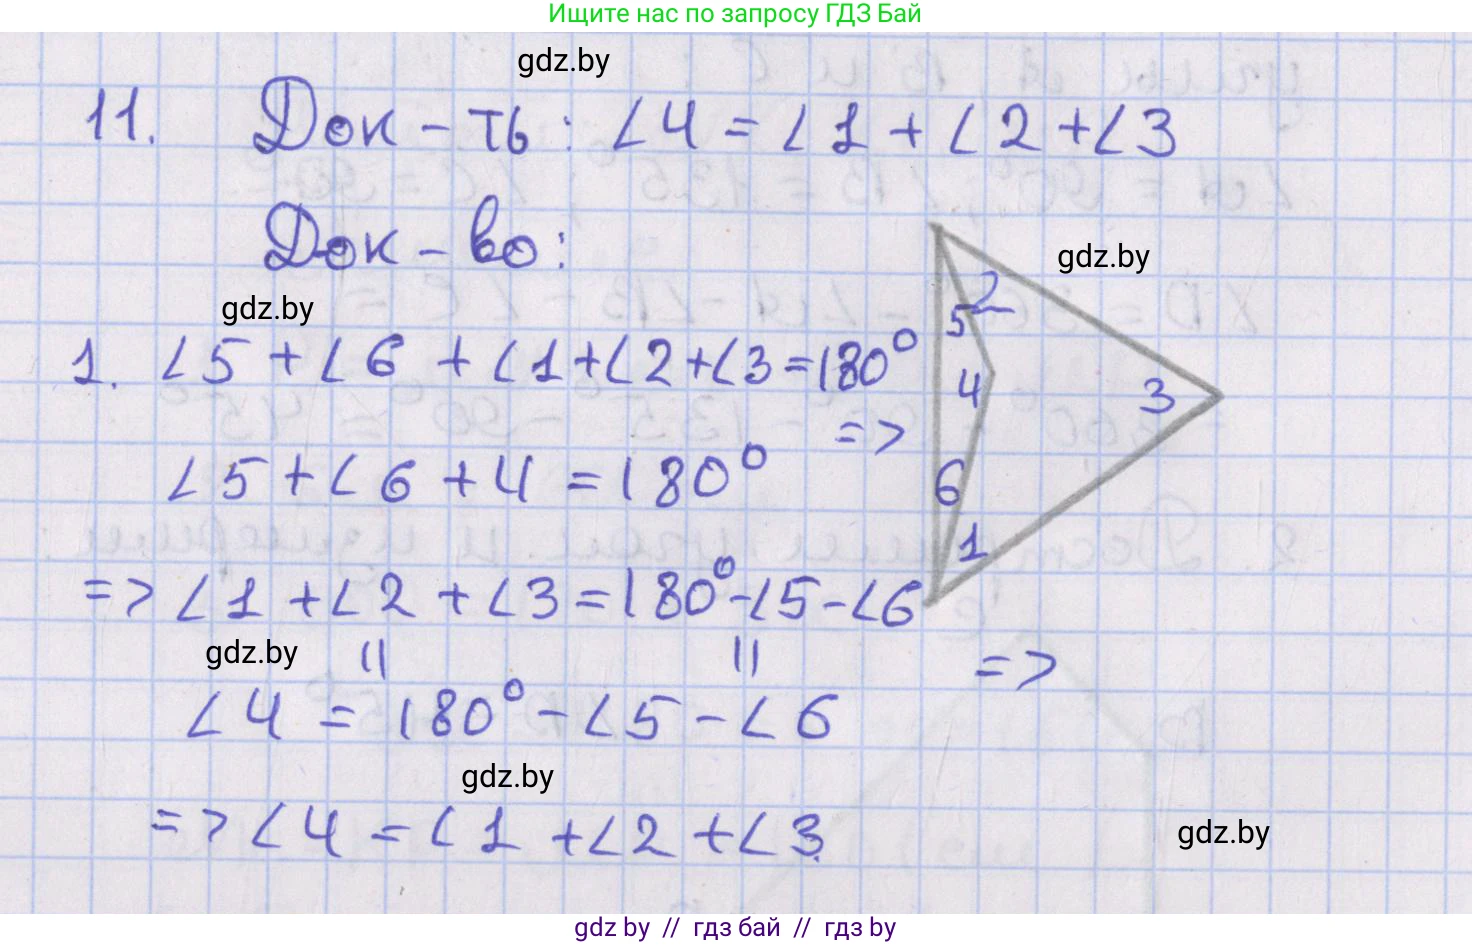 Ищите нас по запросу ГДЗ Бай
gdz.by
11. Док-ть: ∠4 = ∠1 + ∠2 + ∠3
Док-во:
gdz.by
gdz.by
2
5
1. ∠5 + ∠6 + ∠1 + ∠2 + ∠3 = 180°
4
3
=>
∠5 + ∠6 + 4 = 180°
6
1
=> ∠1 + ∠2 + ∠3 = 180° - ∠5 - ∠6
gdz.by
|| ||
=>
∠4 = 180° - ∠5 - ∠6
gdz.by
=> ∠4 = ∠1 + ∠2 + ∠3.
gdz.by
gdz.by // гдз бай // гдз by